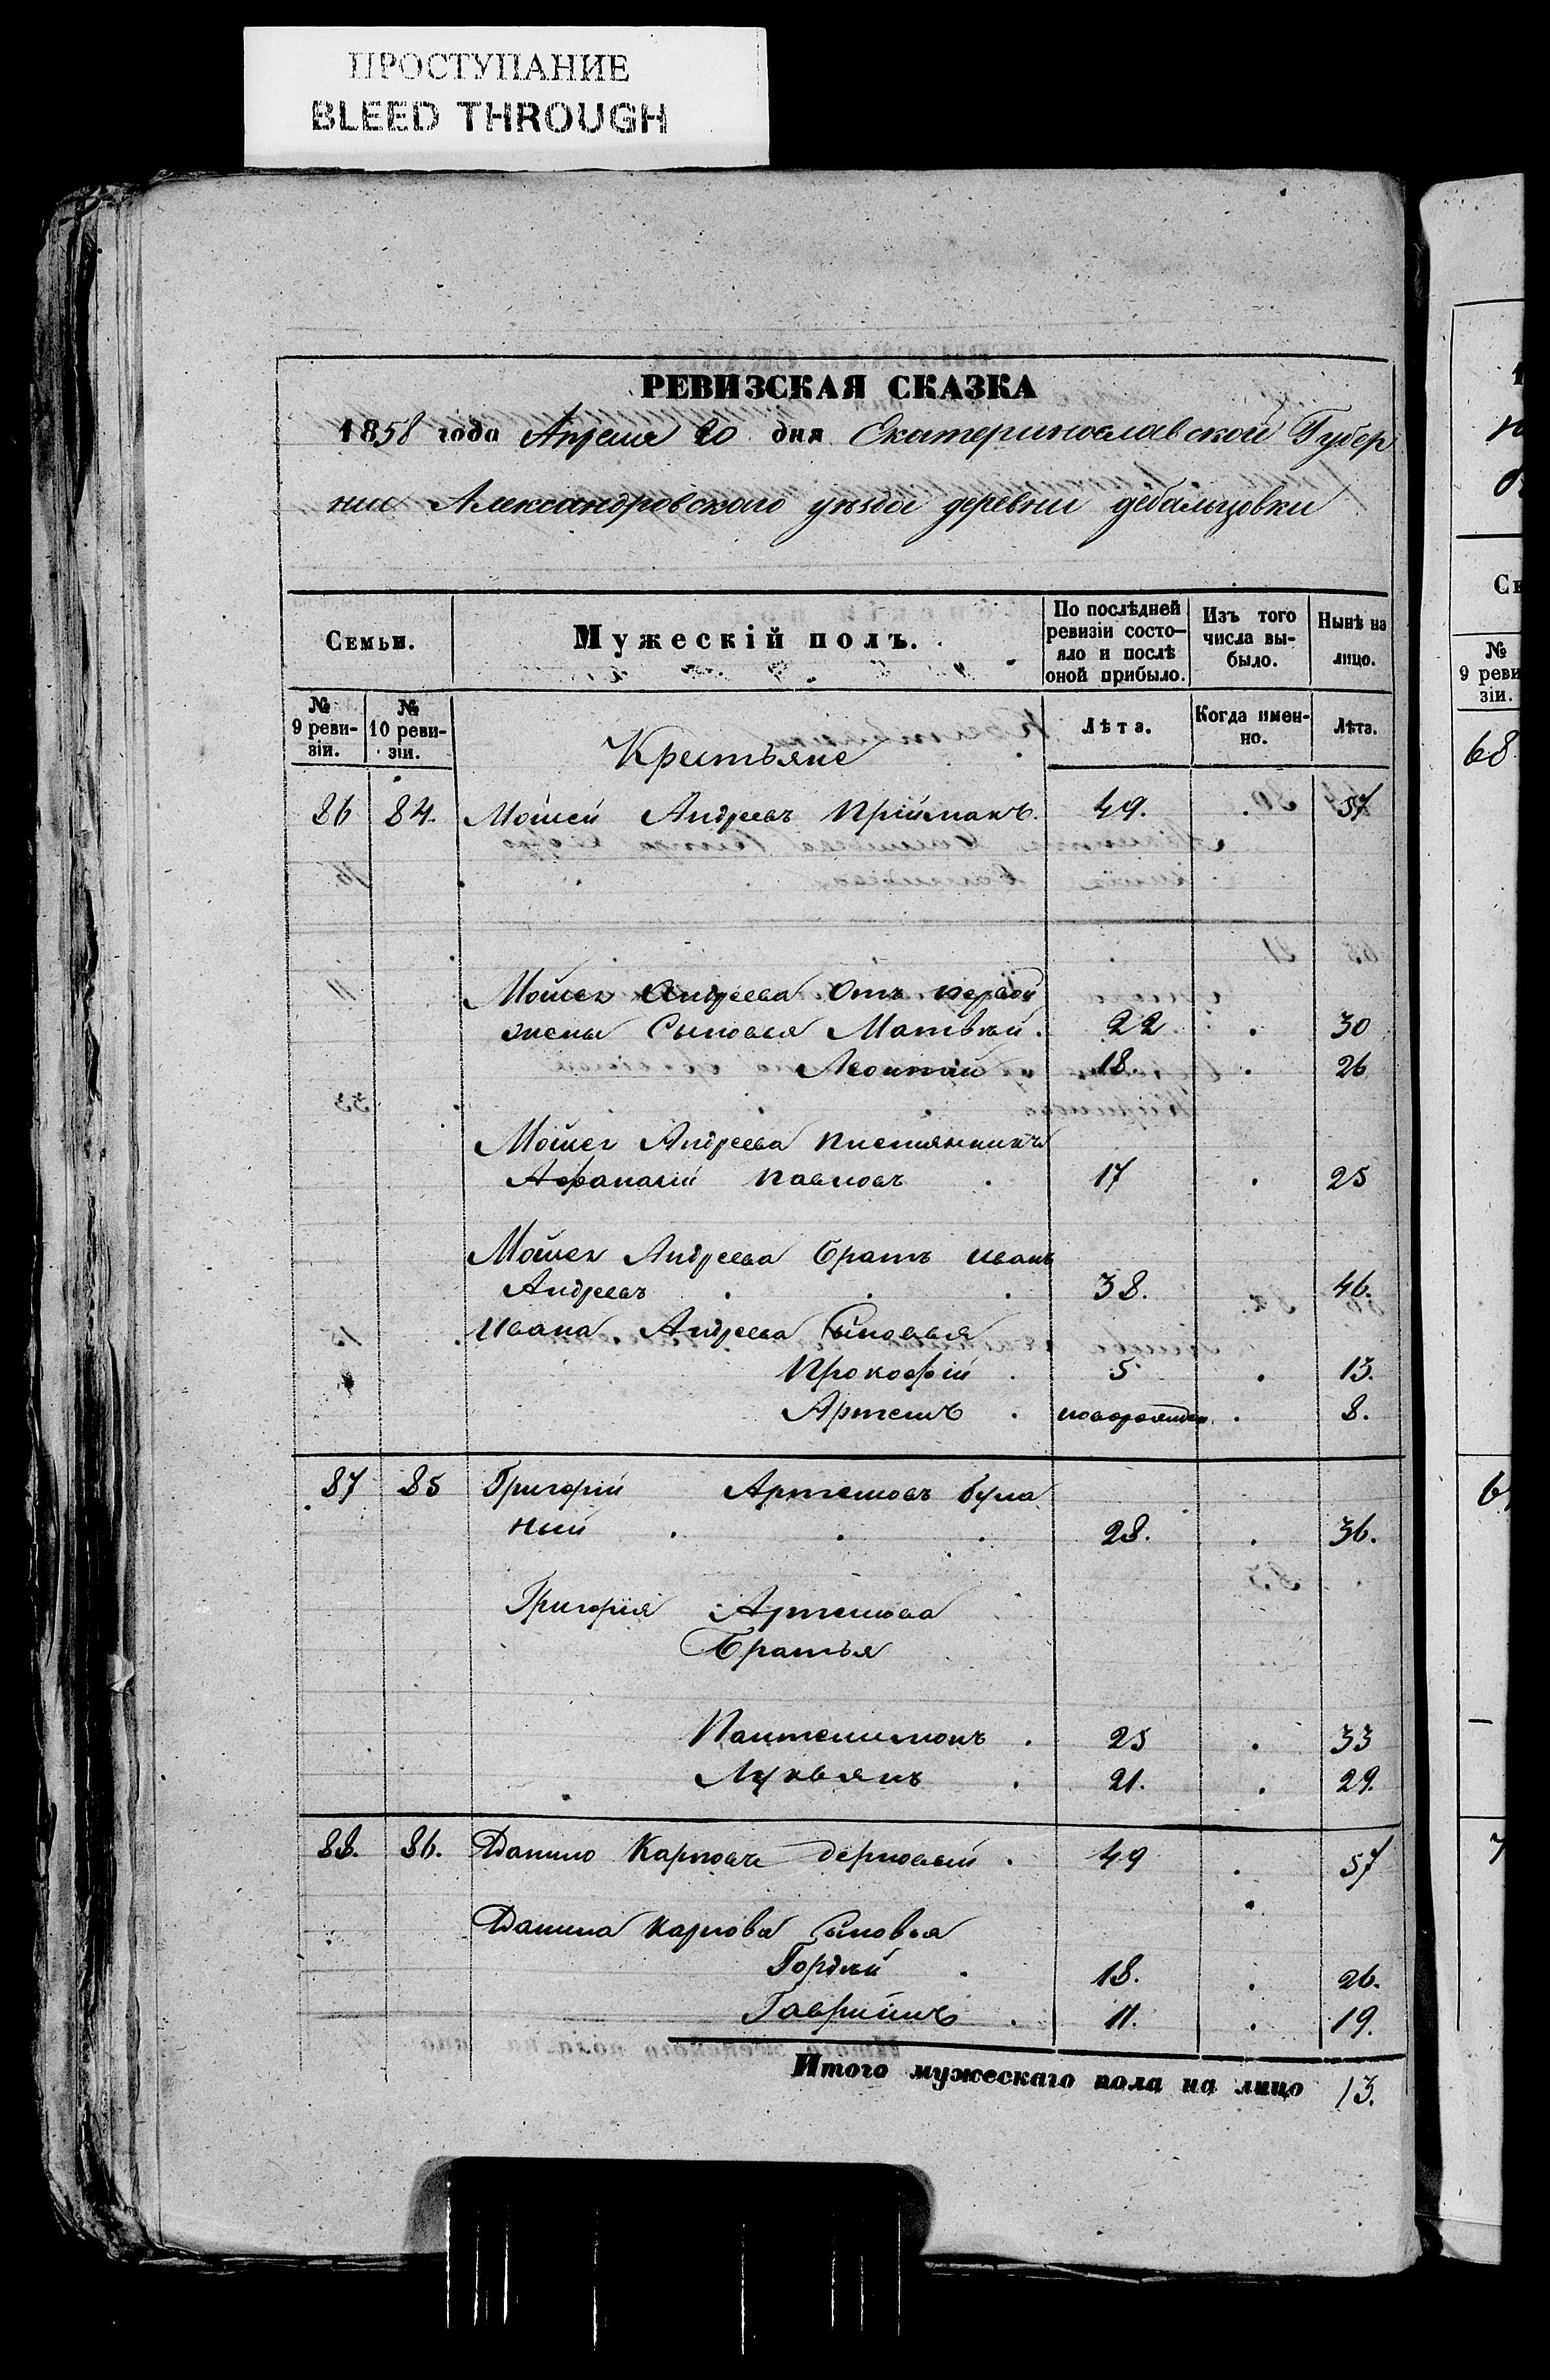 ПРОСТУПАНИЕ
BLEED THROUGH
РЕВИЗСКАЯ СКАЗКА
1858 года Апреля 20 дня Екатеринославской Губер
нии Александровского уѣзда деревни дебальцовки
Семьи.
Мужескій полъ.
По послѣдней ревизіи состо-яло и послѣ оной прибыло.
Изъ того числа вы-было.
Нынѣ на лицо.
№ 9 реви-зіи.
№ 10 реви-зіи.
Лѣта.
Когда имен-но.
Лѣта.
Крестьяне
86 84. Мойсей Андреевъ Приймакъ. 49. . 57
Мойсея Андреева Отъ первой
жены Сыновья Матвѣй. 22 . 30
Леонтий 18. . 26
Мойсея Андреева племянникъ
Афанасий Павловъ . 17 . 25
Мойсея Андреева братъ Иванъ
Андреевъ . . . 38. 46.
Ивана Андреева Сыновья
Прокофий . 5 . 13.
Артемъ . новорожден. . 8.
87 85 Григорий Артемовъ Була
ный . . . 28. . 36.
Григория Артемова
Братья
Пантелимонъ . 25 . 33
Лукьянъ . 21. . 29.
88. 86. Данило Карповъ Дерновый . 49 . 57
Данила Карпова Сыновья
Гордѣй . 18. . 26.
Гавриилъ . 11. . 19.
Итого мужескаго пола на лицо 13.
№ 9 реви зіи.
68